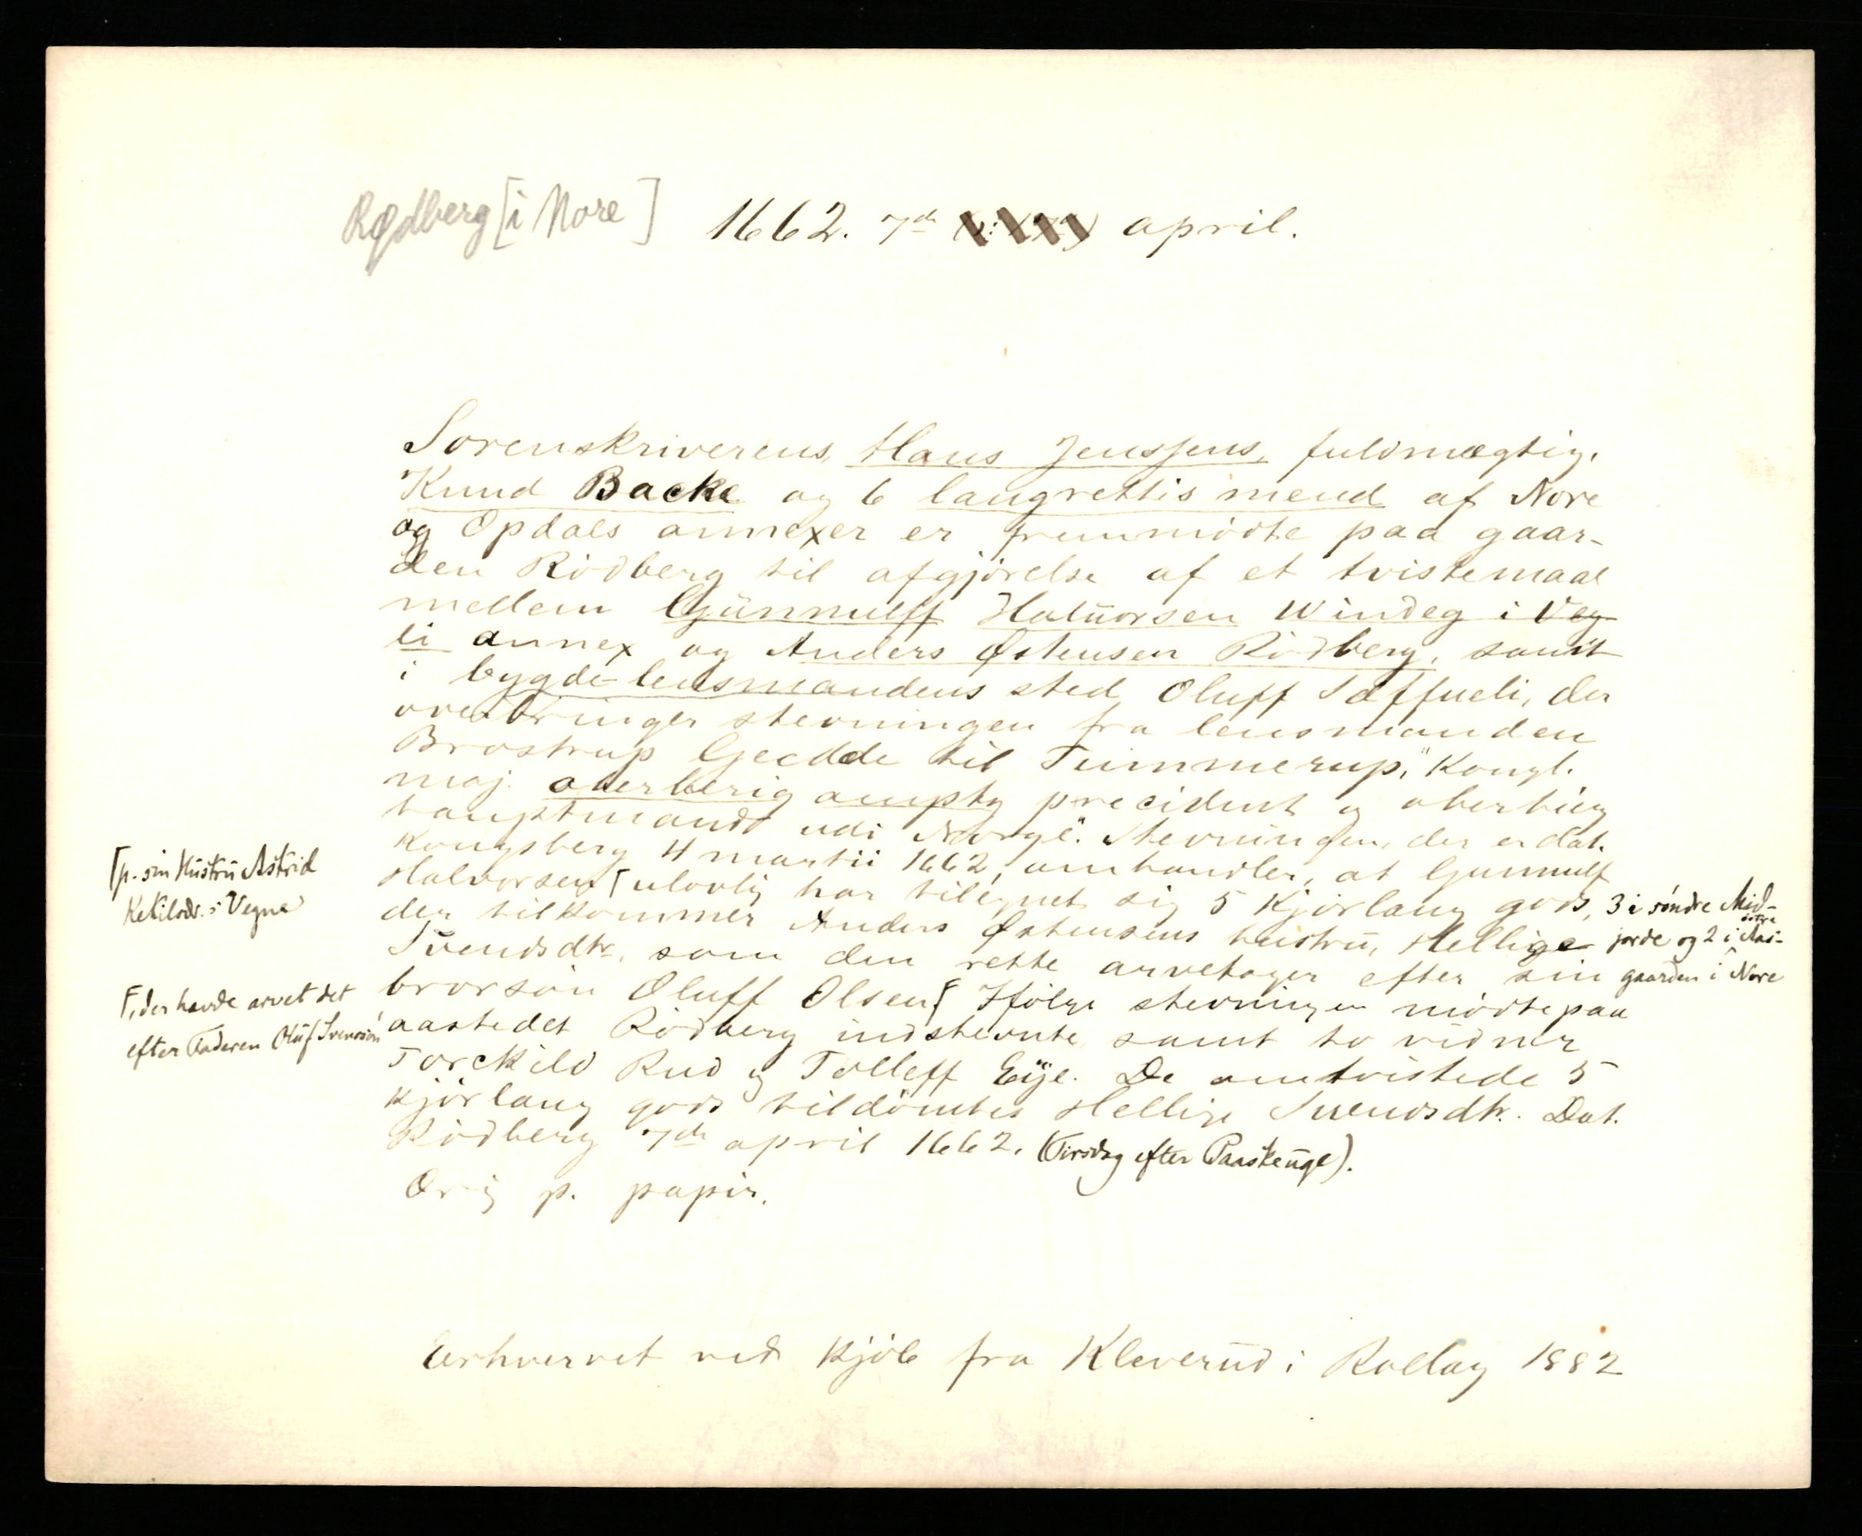 Rødberg [i Nore] 1662. 7de april.
Sorenskriverens, Hans Jenssens, fuldmægtig,
Knud Backe og 6 laugrettis mend af Nore
og Opdals annexer er fremmødte paa gaar-
den Rödberg til afgjörelse af et tvistemaal
mellem Gunnulff Haluorsen Windeg i Veg-
li annex og Anders Østensen Rödberg, samt
i bygde lensmandens sted Oluff Taffueli, der
overbringer stevningen fra lensmanden
Brostrup Gedde til Tummerup, "Kongl.
maj. oberberig ampts precident og oberbierg
hauptmand udi Norge". Stevningen, der er dat.
Kongsberg 4 martii 1662, omhandler, at Gunnulf
Halvorsen [ ulovlig har tilegnet sig 5 Kjörlaug gods, 3 i söndre Mid-
[p. sin Hustru Astrid
Ketilsdr. i Vegne
der tilkommer Anders Østensens hustru, Hellige jorde og 2 i
Svendsdtr. som den rette arvetager efter sin gaarden i Nore
brorsön Oluff Olsen [ Ifölge stevningen mödte paa
[, der havde arvet det
efter Faderen Oluf Svensön
aastedet Rödberg indstevnte samt to vidner
Torckild Rud og Tolleff Eÿe. De omtvistede 5
Kjörlaug gods tildömtes Hellige Svendsdtr. Dat.
Rödberg 7de april 1662. (Tirsdag efter Paaskeuge).
Orig p. papir.
Erhvervet ved Kjöb fra Kleverud i Rollag 1882